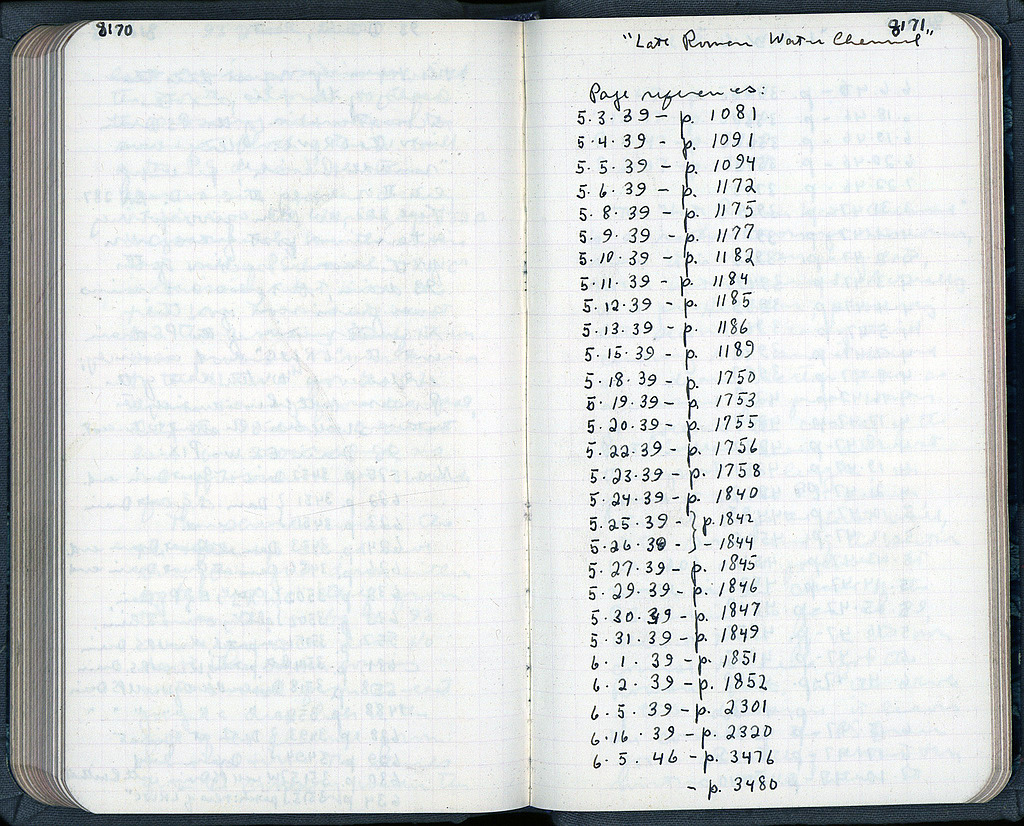 8170
8171
"Late Roman Water Channel"
Page references:
5.3.39 - p. 1081
5.4.39 - p. 1091
5.5.39 - p. 1094
5.6.39 - p. 1172
5.8.39 - p. 1175
5.9.39 - p. 1177
5.10.39 - p. 1182
5.11.39 - p. 1184
5.12.39 - p. 1185
5.13.39 - p. 1186
5.15.39 - p. 1189
5.18.39 - p. 1750
5.19.39 - p. 1753
5.20.39 - p. 1755
5.22.39 - p. 1756
5.23.39 - p. 1758
5.24.39 - p. 1840
5.25.39 - } p. 1842
5.26.39 - } - 1844
5.27.39 - p. 1845
5.29.39 - p. 1846
5.30.39 - p. 1847
5.31.39 - p. 1849
6.1.39 - p. 1851
6.2.39 - p. 1852
6.5.39 - p. 2301
6.16.39 - p. 2320
6.5.46 - p. 3476
- p. 3480